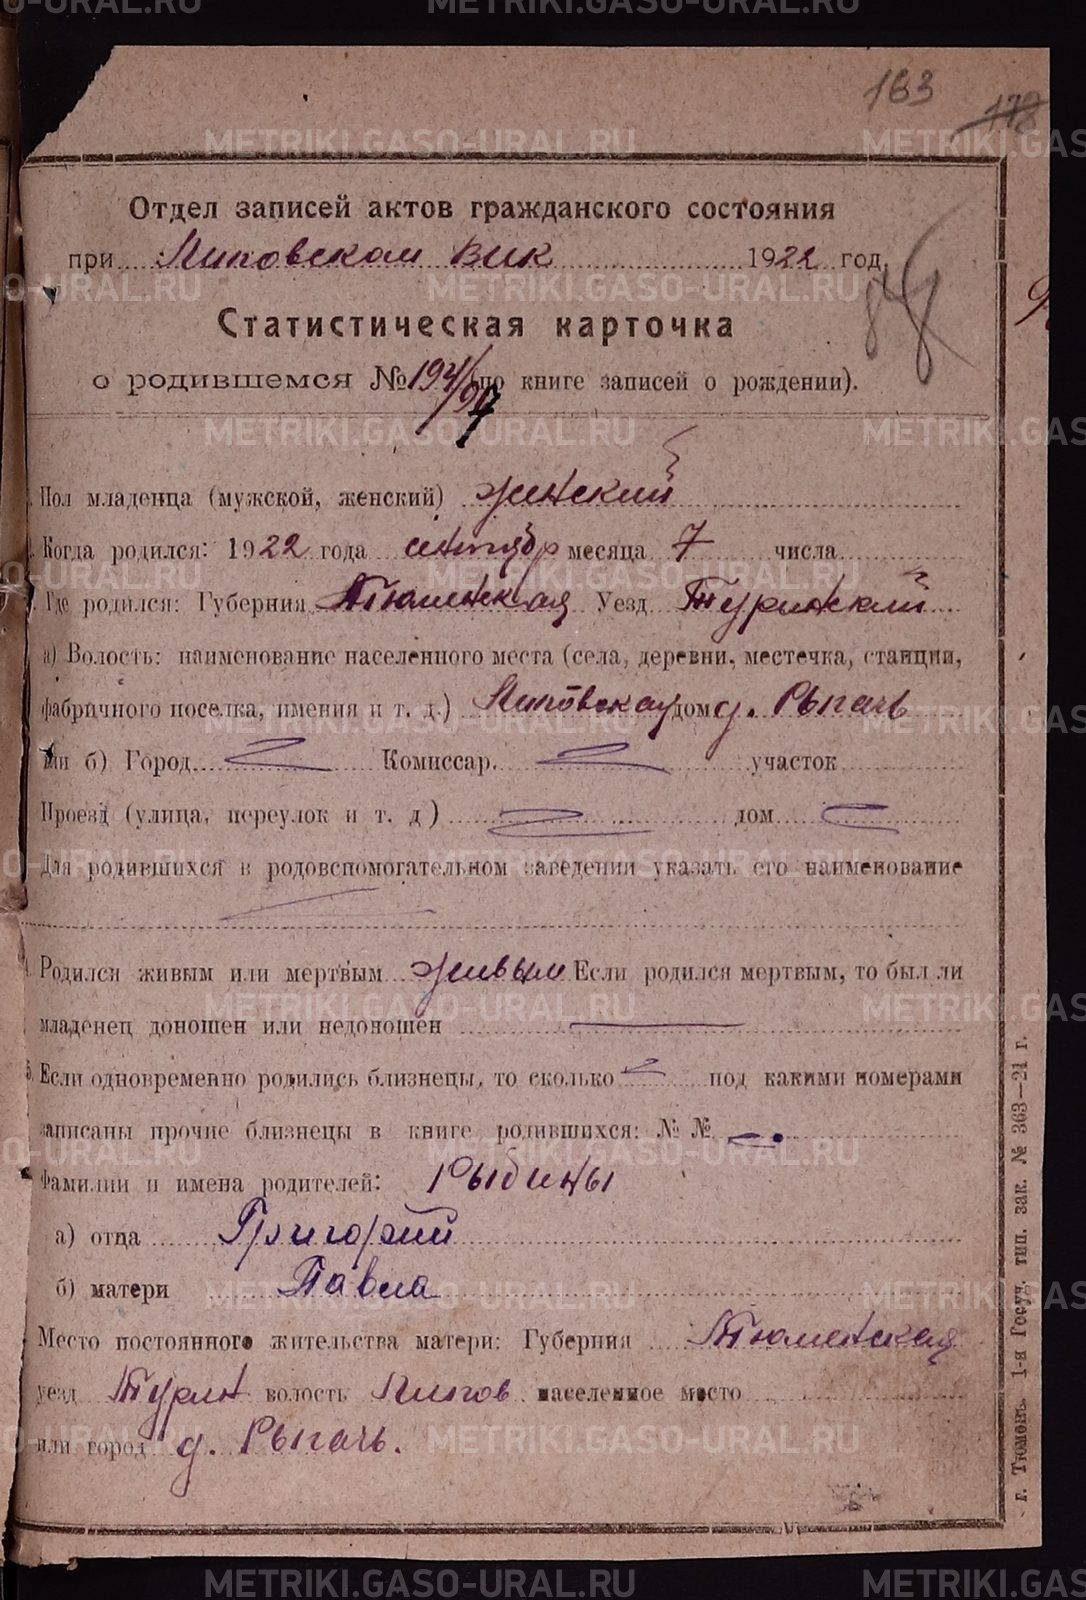 163 178
Отдел записей актов гражданского состояния
при Липовском вик 1922 год.
Статистическая карточка
о родившемся № 194/97 (по книге записей о рождении).
Пол младенца (мужской, женский) женский
Когда родился: 1922 года сентябр месяца 7 числа
Где родился: Губерния Тюменская Уезд Туринский
а) Волость: наименование населенного места (села, деревни, местечка, станции,
фабричного поселка, имения и т. д.) Липовская дом д. Рычачь
или б) Город Комиссар. участок
Проезд (улица, переулок и т. д) дом
Для родившихся в родовспомогательном заведении указать его наименование
Родился живым или мертвым живым Если родился мертвым, то был ли
младенец доношен или недоношен
5. Если одновременно родились близнецы, то сколько под какими номерами
записаны прочие близнецы в книге родившихся: № №
Фамилии и имена родителей: Рыбины
а) отца Григорий
б) матери Павла
Место постоянного жительства матери: Губерния Тюменская
уезд Турин волость Липов населенное место
или город д. Рычачь.
г. Тюмень. 1-я Госуд. тип. зак. № 363—21 г.
METRIKI.GASO-URAL.RU